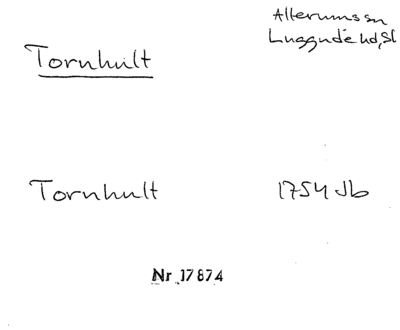 Allerums sn
Luggude hd, Sk
Tornhult
Tornhult 1754 Jb
Nr 17874